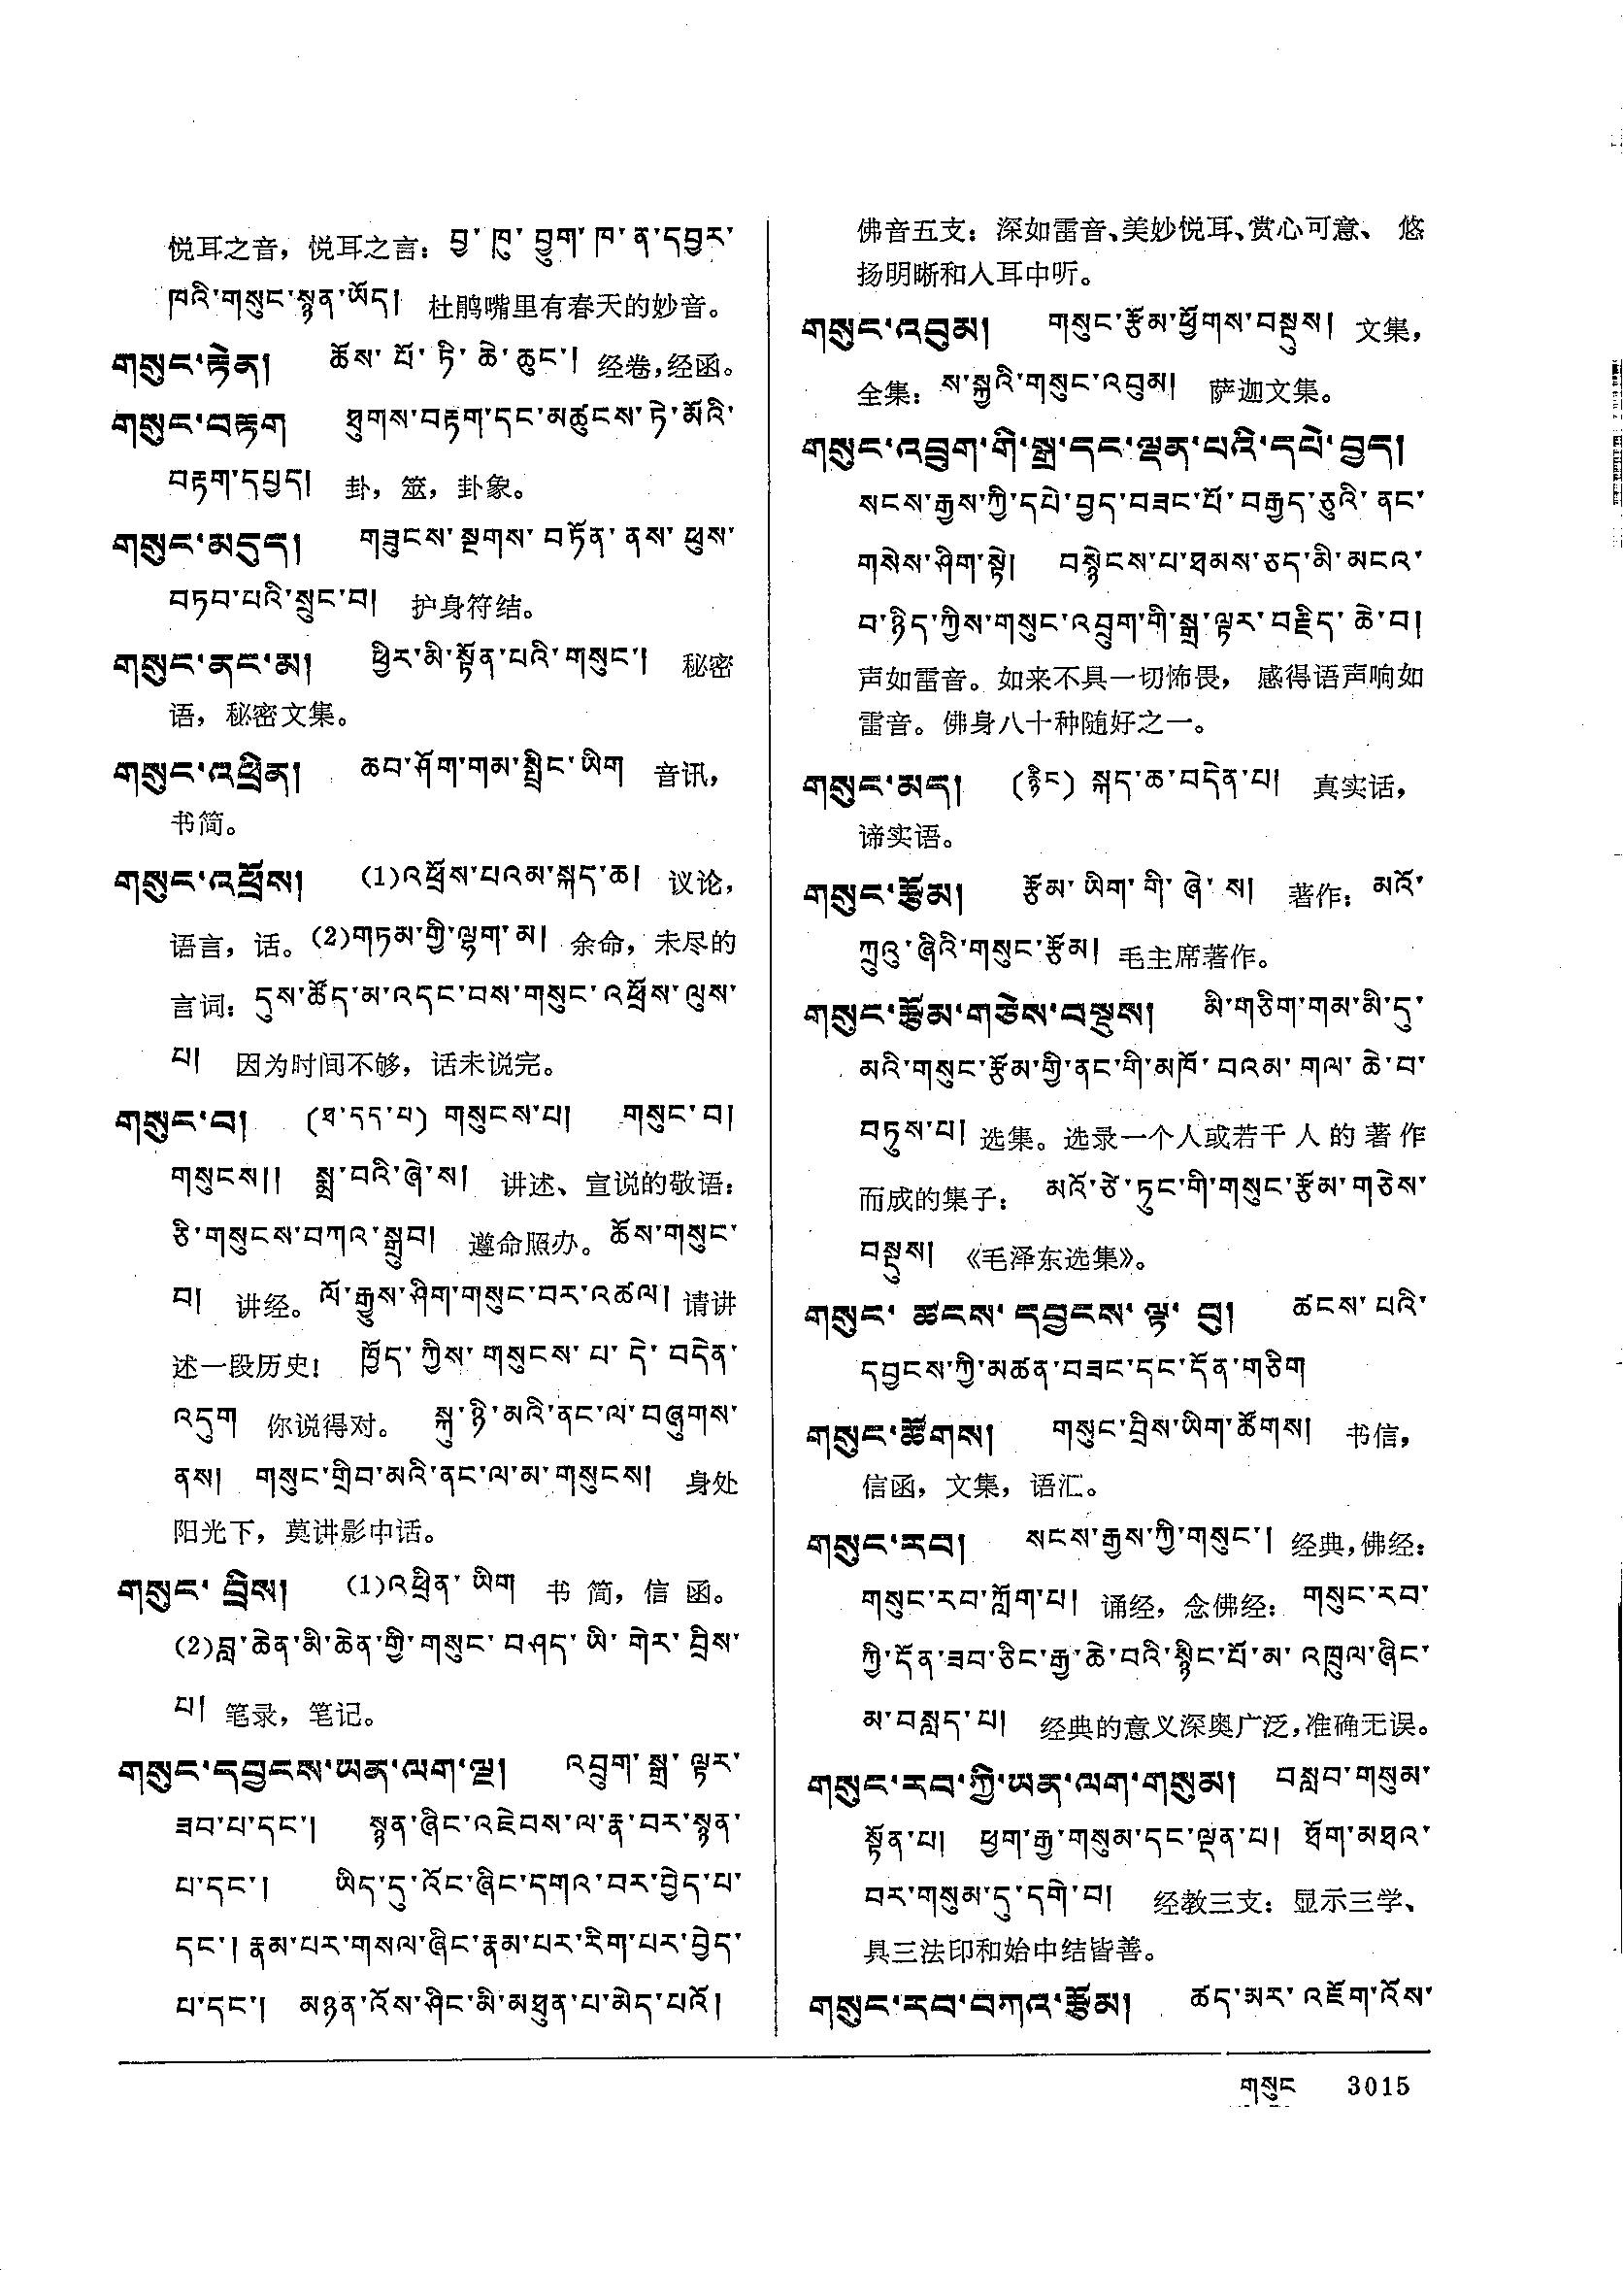 悦耳之音，悦耳之言：བྱ་ཁུ་བྱུག་ཁ་ན་དབྱར་
ཁའི་གསུང་སྙན་ཡོད། 杜鹃嘴里有春天的妙音。
གསུང་རྟེན། ཆོས་པོ་ཏི་ཆེ་ཆུང་། 经卷，经函。
གསུང་བརྟག ཐུགས་བརྟག་དང་མཚུངས་ཏེ་མོའི་
བརྟག་དཔྱད། 卦，筮，卦象。
གསུང་མདུད། གཟུངས་སྔགས་བཏོན་ནས་ཕུས་
བཏབ་པའི་སྲུང་བ། 护身符结。
གསུང་ནང་མ། ཕྱིར་མི་སྟོན་པའི་གསུང་། 秘密
语，秘密文集。
གསུང་འཕྲིན། ཆབ་ཤོག་གམ་སྤྲིང་ཡིག 音讯，
书简。
གསུང་འཕྲོས། (1)འཕྲོས་པའམ་སྐད་ཆ། 议论，
语言，话。(2)གཏམ་གྱི་ལྷག་མ། 余命，未尽的
言词：དུས་ཚོད་མ་འདང་བས་གསུང་འཕྲོས་ལུས་
པ། 因为时间不够，话未说完。
གསུང་བ། (ཐ་དད་པ) གསུངས་པ། གསུང་བ།
གསུངས།། སྨྲ་བའི་ཞེ་ས། 讲述、宣说的敬语：
ཅི་གསུངས་བཀའ་སྒྲུབ། 遵命照办。ཆོས་གསུང་
བ། 讲经。ལོ་རྒྱུས་ཤིག་གསུང་བར་འཚལ། 请讲
述一段历史！ ཁྱོད་ཀྱིས་གསུངས་པ་དེ་བདེན་
འདུག 你说得对。 སྐུ་ཉི་མའི་ནང་ལ་བཞུགས་
ནས། གསུང་གྲིབ་མའི་ནང་ལ་མ་གསུངས། 身处
阳光下，莫讲影中话。
གསུང་བྲིས། (1)འཕྲིན་ཡིག 书简，信函。
(2)བླ་ཆེན་མི་ཆེན་གྱི་གསུང་བཤད་ཡི་གེར་བྲིས་
པ། 笔录，笔记。
གསུང་དབྱངས་ཡན་ལག་ལྔ། འབྲུག་སྒྲ་ལྟར་
ཟབ་པ་དང་། སྙན་ཞིང་འཇེབས་ལ་རྣ་བར་སྙན་
པ་དང་། ཡིད་དུ་འོང་ཞིང་དགའ་བར་བྱེད་པ་
དང་། རྣམ་པར་གསལ་ཞིང་རྣམ་པར་རིག་པར་བྱེད་
པ་དང་། མཉན་འོས་ཤིང་མི་མཐུན་པ་མེད་པའོ།
佛音五支：深如雷音、美妙悦耳、赏心可意、悠
扬明晰和人耳中听。
གསུང་འབུམ། གསུང་རྩོམ་ཕྱོགས་བསྡུས། 文集，
全集：ས་སྐྱའི་གསུང་འབུམ། 萨迦文集。
གསུང་འབྲུག་གི་སྒྲ་དང་ལྡན་པའི་དཔེ་བྱད།
སངས་རྒྱས་ཀྱི་དཔེ་བྱད་བཟང་པོ་བརྒྱད་ཅུའི་ནང་
གསེས་ཤིག་སྟེ། བསྙེངས་པ་ཐམས་ཅད་མི་མངའ་
བ་ཉིད་ཀྱིས་གསུང་འབྲུག་གི་སྒྲ་ལྟར་བརྗིད་ཆེ་བ།
声如雷音。如来不具一切怖畏，感得语声响如
雷音。佛身八十种随好之一。
གསུང་མད། (རྙིང) སྐད་ཆ་བདེན་པ། 真实话，
谛实语。
གསུང་རྩོམ། རྩོམ་ཡིག་གི་ཞེ་ས། 著作：མའོ་
ཀྲུའུ་ཞིའི་གསུང་རྩོམ། 毛主席著作。
གསུང་རྩོམ་གཅེས་བསྡུས། མི་གཅིག་གམ་མི་དུ་
མའི་གསུང་རྩོམ་གྱི་ནང་གི་མཁོ་བའམ་གལ་ཆེ་བ་
བཏུས་པ། 选集。选录一个人或若干人的著作
而成的集子： མའོ་ཙེ་ཏུང་གི་གསུང་རྩོམ་གཅེས་
བསྡུས། 《毛泽东选集》。
གསུང་ཚངས་དབྱངས་ལྟ་བུ། ཚངས་པའི་
དབྱངས་ཀྱི་མཚན་བཟང་དང་དོན་གཅིག
གསུང་ཚོགས། གསུང་བྲིས་ཡིག་ཚོགས། 书信，
信函，文集，语汇。
གསུང་རབ། སངས་རྒྱས་ཀྱི་གསུང་། 经典，佛经：
གསུང་རབ་ཀློག་པ། 诵经，念佛经：གསུང་རབ་
ཀྱི་དོན་ཟབ་ཅིང་རྒྱ་ཆེ་བའི་སྙིང་པོ་མ་འཁྲུལ་ཞིང་
མ་བསླད་པ། 经典的意义深奥广泛，准确无误。
གསུང་རབ་ཀྱི་ཡན་ལག་གསུམ། བསླབ་གསུམ་
སྟོན་པ། ཕྱག་རྒྱ་གསུམ་དང་ལྡན་པ། ཐོག་མཐའ་
བར་གསུམ་དུ་དགེ་བ། 经教三支：显示三学、
具三法印和始中结皆善。
གསུང་རབ་བཀའ་རྩོམ། ཚད་མར་འཇོག་འོས་
གསུང 3015